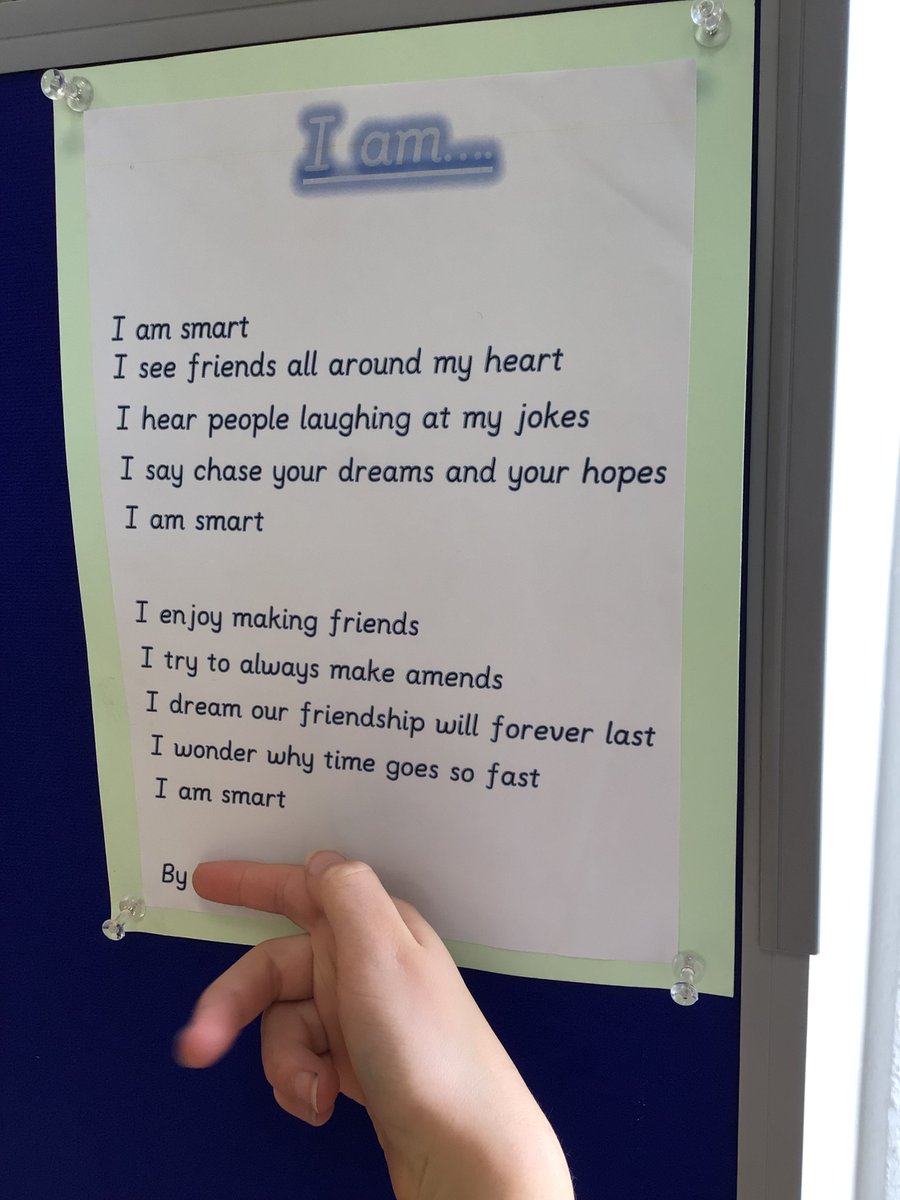 I am....
I am smart
I see friends all around my heart
I hear people laughing at my jokes
I say chase your dreams and your hopes
I am smart
I enjoy making friends
I try to always make amends
I dream our friendship will forever last
I wonder why time goes so fast
I am smart
By